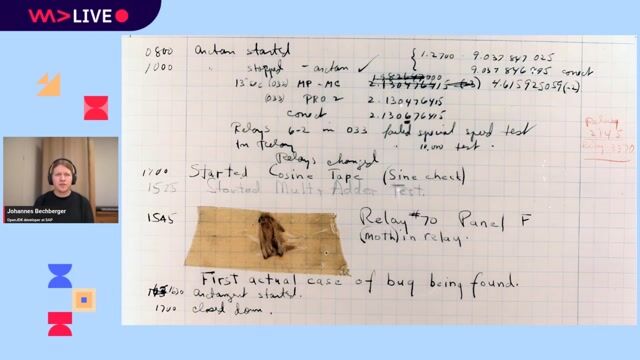 LIVE
0800 arctan started
1000 " stopped - arctan ✓
{ 1.2700 9.037 847 025
9.037 846 995 conect
13" uc (032) MP-MC 2.130476415 4.615925059(-2)
(033) PRO 2 2.130476415
conect 2.130676415
Relays 6-2 in 033 failed special speed test
in relay " 10.000 test.
Relay
2145
Relay 3370
Relays changed
1700 Started Cosine Tape (Sine check)
1525 Started Mult+ Adder Test.
1545 Relay #70 Panel F
(moth) in relay.
First actual case of bug being found.
1630 arctangent started.
1700 closed down.
Johannes Bechberger
OpenJDK developer at SAP